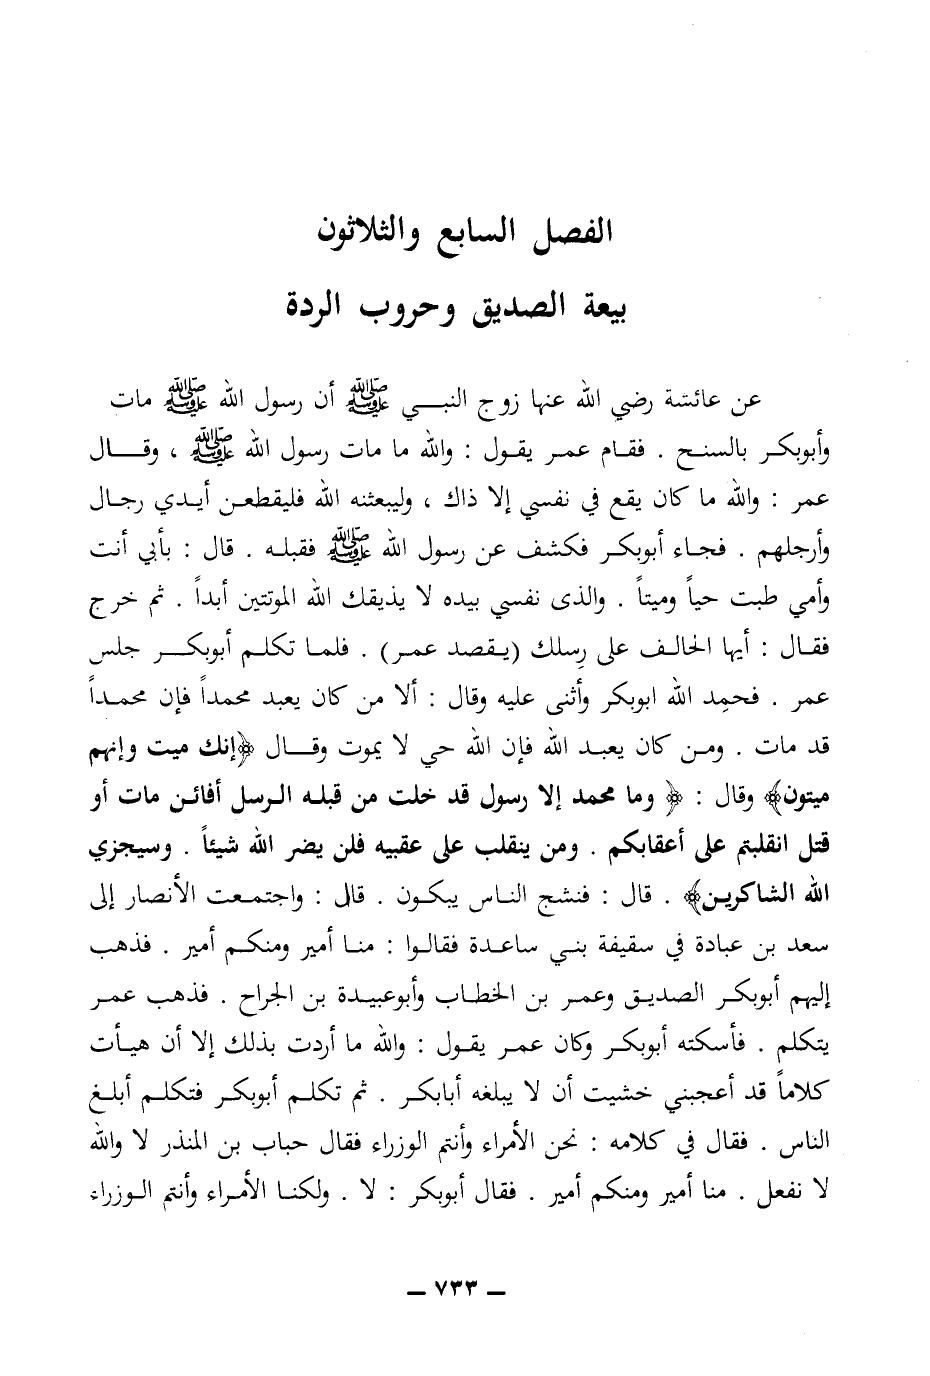 الفصل السابع والثلاثون
بيعة الصديق وحروب الردة
عن عائشة رضي الله عنها زوج النبي ﷺ أن رسول الله ﷺ مات
وأبوبكر بالسنح . فقام عمر يقول : والله ما مات رسول الله ﷺ ، وقال
عمر : والله ما كان يقع في نفسي إلا ذاك ، وليبعثنه الله فليقطعن أيدي رجال
وأرجلهم . فجاء أبوبكر فكشف عن رسول الله ﷺ فقبله . قال : بأبي أنت
وأمي طبت حياً وميتاً . والذى نفسي بيده لا يذيقك الله الموتتين أبداً . ثم خرج
فقال : أيها الحالف على رِسلك (يقصد عمر) . فلما تكلم أبوبكر جلس
عمر . فحمِد الله ابوبكر وأثنى عليه وقال : ألا من كان يعبد محمداً فإن محمداً
قد مات . ومن كان يعبد الله فإن الله حي لا يموت وقال ﴿إنك ميت وإنهم
ميتون﴾ وقال : ﴿ وما محمد إلا رسول قد خلت من قبله الرسل أفائن مات أو
قتل انقلبتم على أعقابكم . ومن ينقلب على عقبيه فلن يضر الله شيئاً . وسيجزي
الله الشاكرين﴾ . قال : فنشج الناس يبكون . قال : واجتمعت الأنصار إلى
سعد بن عبادة في سقيفة بني ساعدة فقالوا : منا أمير ومنكم أمير . فذهب
إليهم أبوبكر الصديق وعمر بن الخطاب وأبوعبيدة بن الجراح . فذهب عمر
يتكلم . فأسكته أبوبكر وكان عمر يقول : والله ما أردت بذلك إلا أن هيأت
كلاماً قد أعجبني خشيت أن لا يبلغه أبابكر . ثم تكلم أبوبكر فتكلم أبلغ
الناس . فقال في كلامه : نحن الأمراء وأنتم الوزراء فقال حباب بن المنذر لا والله
لا نفعل . منا أمير ومنكم أمير . فقال أبوبكر : لا . ولكنا الأمراء وأنتم الوزراء
– ٧٣٣ –